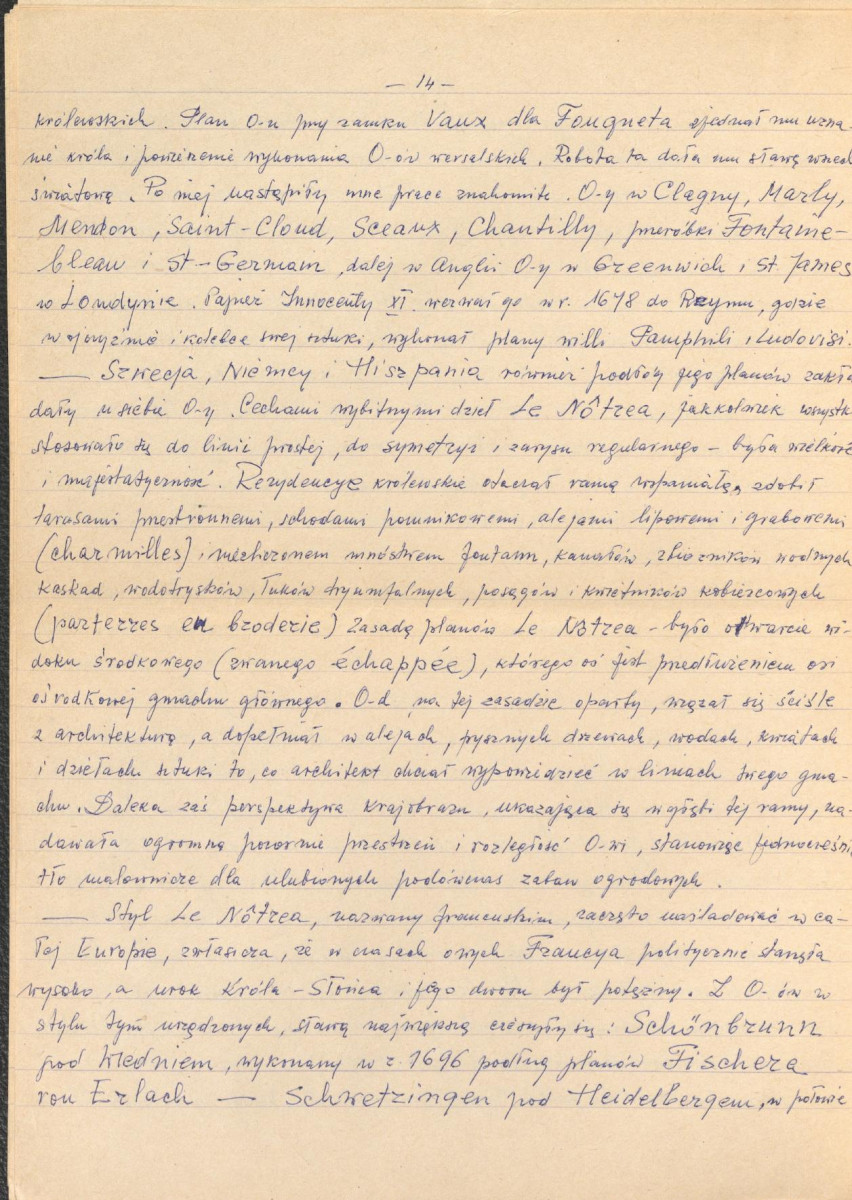 — 14 —
królewskich. Plan O-u przy zamku Vaux dla Fouqueta zjednał mu uzna-
nie króla i powierzenie wykonania O-ów wersalskich. Robota ta dała mu sławę wszech
światową. Po niej nastąpiły inne prace znakomite. O-y w Clagny, Marly,
Meudon, Saint-Cloud, Sceaux, Chantilly, przeróbki Fontaine-
bleau i St-Germain, dalej w Anglii O-y w Greenwich i St. James
w Londynie. Papież Innocenty XI. wezwał go w r. 1678 do Rzymu, gdzie
w ojczyźnie i kolebce swej sztuki, wykonał plany willi Pamphili i Ludovisi.
— Szwecja, Niemcy i Hiszpania również podług jego planów zakła
dały u siebie O-y. Cechami wybitnymi dzieł Le Nôtrea, jakkolwiek wszystk
stosowało się do linii prostej, do symetryi i zarysu regularnego – była wielkość
i majestatyczność. Rezydencye królewskie otaczał ramą wspaniałą, zdobił
tarasami przestronnemi, schodami pomnikowemi, alejami lipowemi i grabowemi
(charmilles) i niezliczonem mnóstwem fontann, kanałów, zbiorników wodnych
kaskad, wodotrysków, łuków tryumfalnych, posągów i kwietników kobiercowych
(parterres en broderie) Zasadą planów Le Nôtrea – było otwarcie wi-
doku środkowego (zwanego échappée), którego oś jest przedłużeniem osi
ośrodkowej gmachu głównego. O-d na tej zasadzie oparty, wiązał się ściśle
z architekturą, a dopełniał w alejach, pysznych drzewach, wodach, kwiatach
i dziełach sztuki to, co architekt chciał wypowiedzieć w liniach swego gma-
chu. Daleka zaś perspektywa krajobrazu, ukazująca się w głębi tej ramy, na-
dawała ogromną pozornie przestrzeń i rozległość O-wi, stanowiąc jednocześni
tło malownicze dla ulubionych podówczas zabaw ogrodowych.
— Styl Le Nôtrea, nazwany francuskim, zaczęto naśladować w ca-
łej Europie, zwłaszcza, że w czasach owych Francya politycznie stanęła
wysoko, a urok Króla-Słońca i jego dworu był potężny. Z O-ów w
stylu tym urządzonych, sławą największą cieszyły się: Schönbrunn
pod Wiedniem, wykonany w r. 1696 podług planów Fischera
von Erlach — Schwetzingen pod Heidelbergem, w połowie